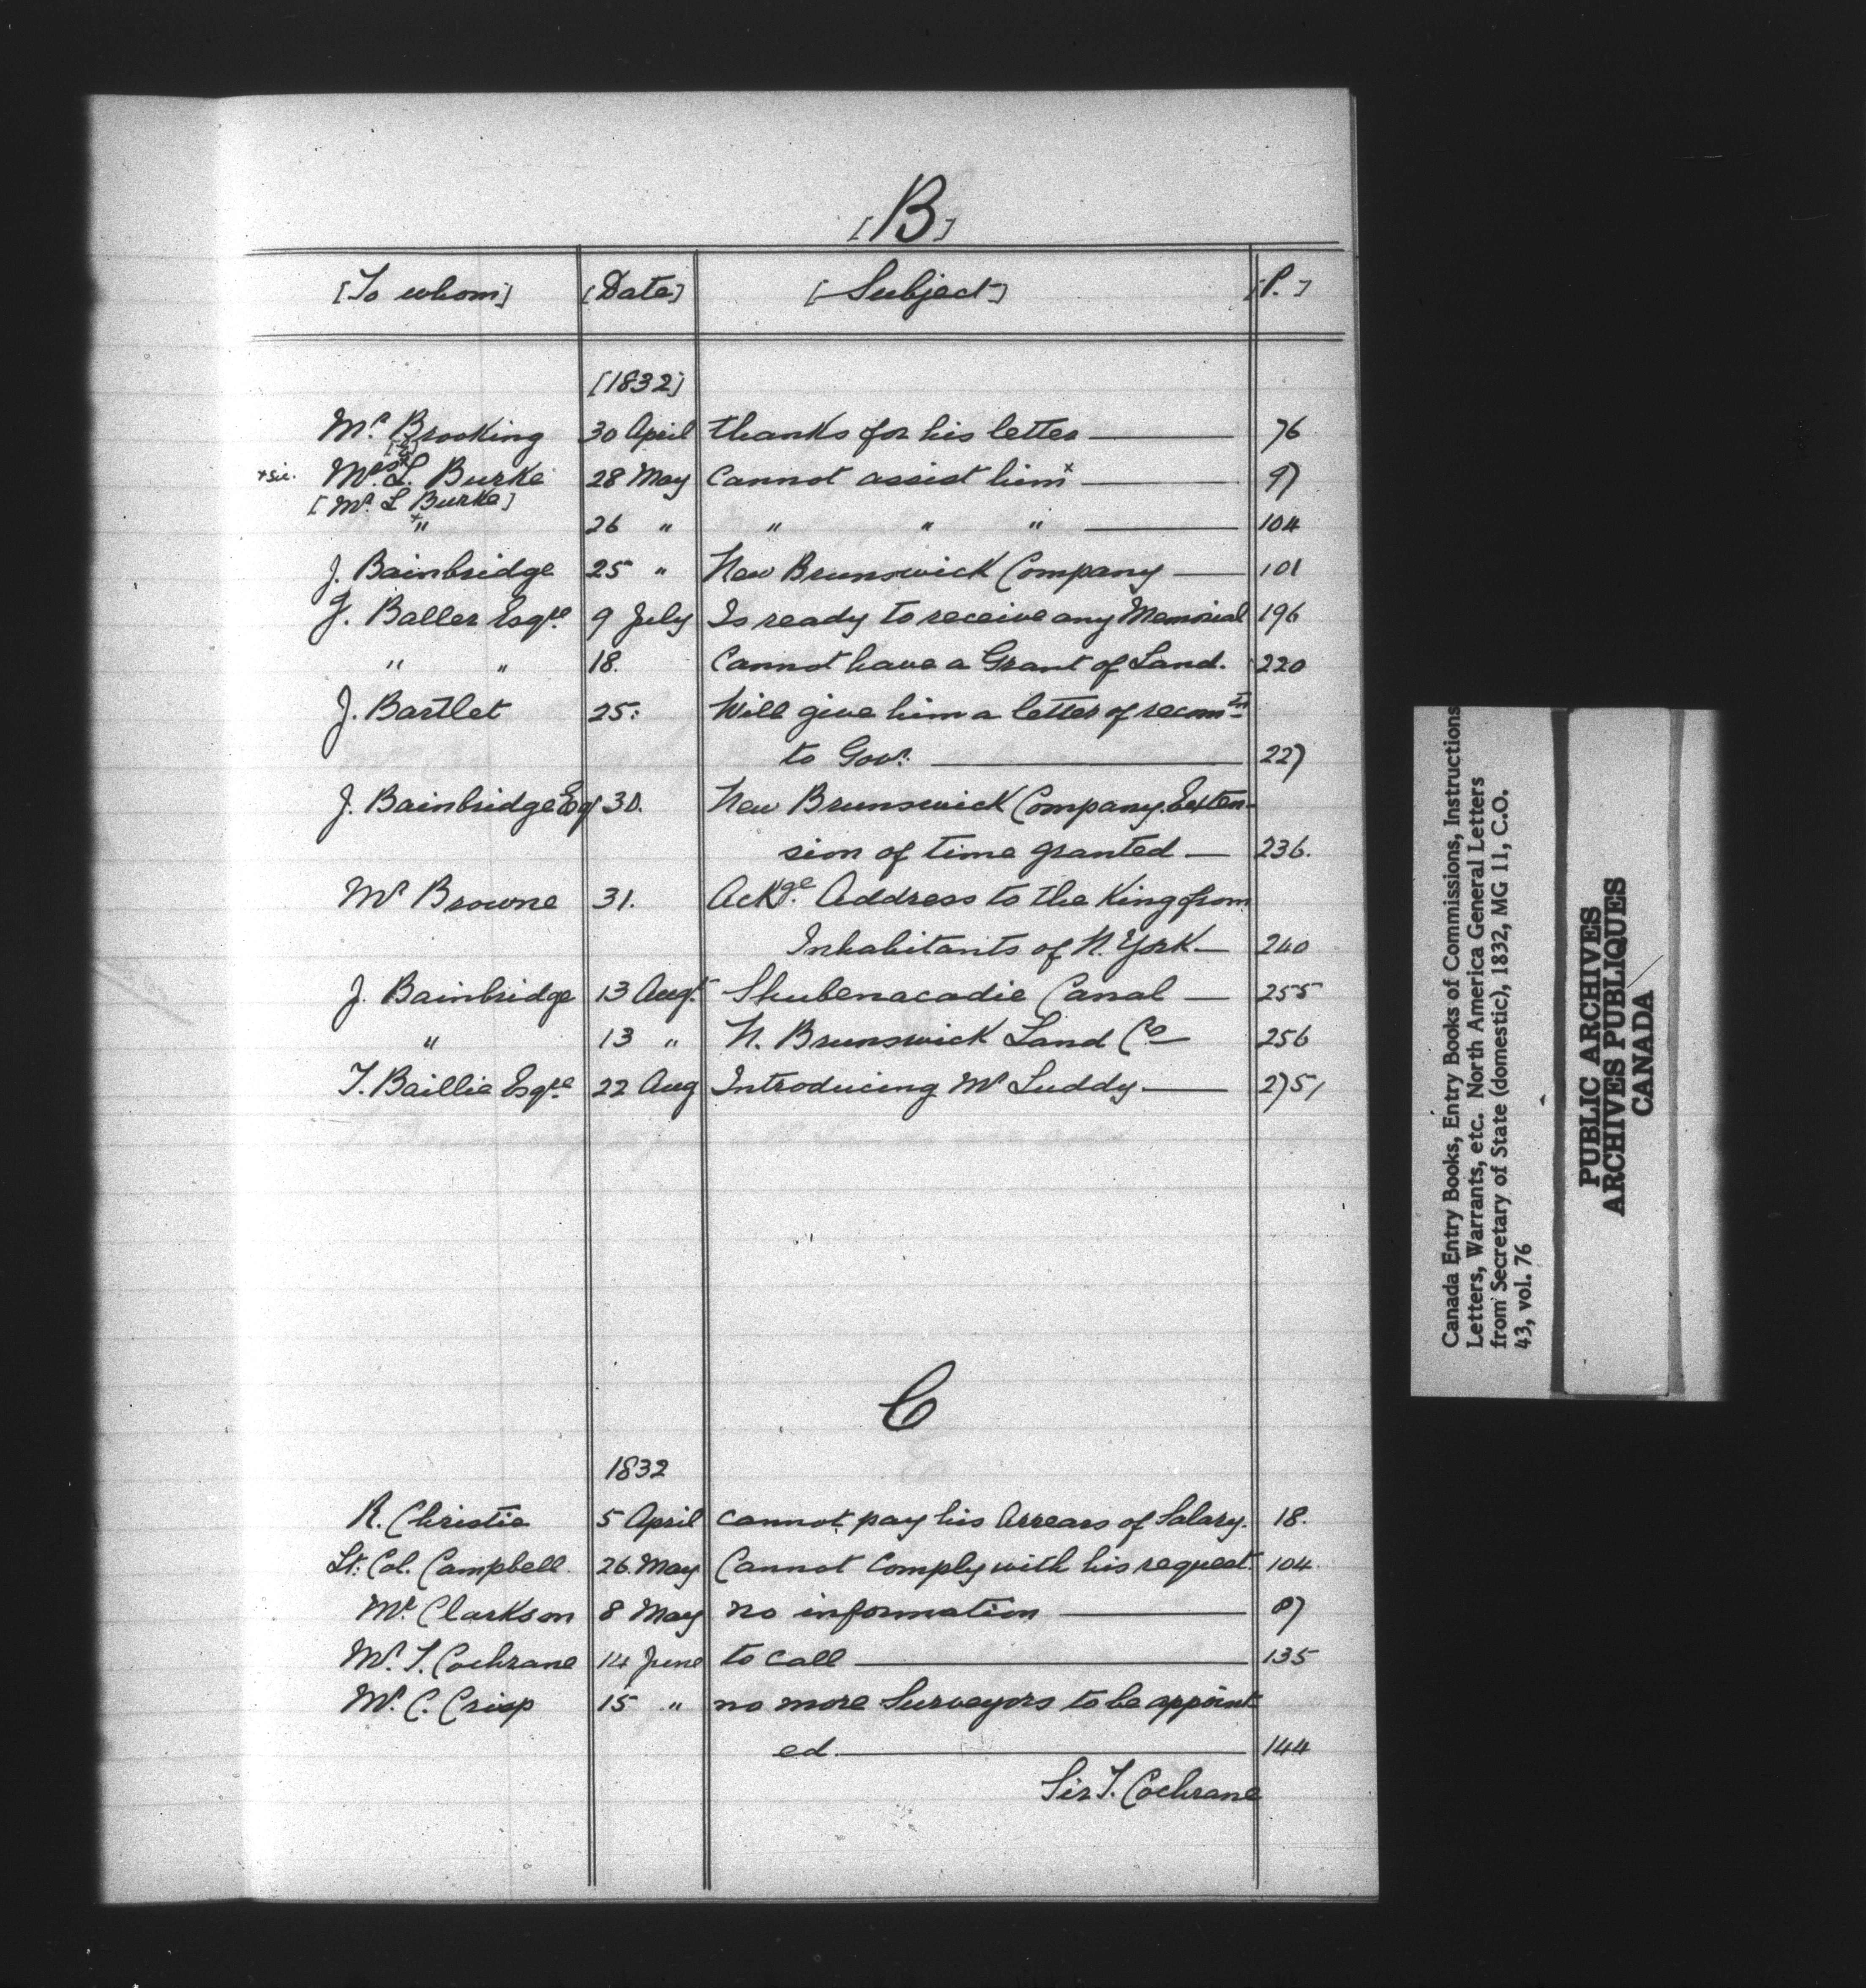 [B]
[To whom] [Date] [Subject] [P.]
[1832]
Mr. Brooking 30 April thanks for his letter 76
+sic. Mrs. L. Burke 28 May Cannot assist him+ 97
[Mr. L Burke]
" 26 " " " " 104
J. Bainbridge 25 " New Brunswick Company 101
J. Baller Esqre. 9 July Is ready to receive any Memorial 196
" " 18. Cannot have a Grant of Land. 220
J. Bartlet 25: Will give him a letter of recomtn
to Govr. 227
J. Bainbridge Esq 30. New Brunswick Company. Exten-
sion of time granted 236.
Mr Browne 31. Ackge. Address to the King from
Inhabitants of N. York 240
J. Bainbridge 13 Augt. Shubenacadie Canal 255
" 13 " N. Brunswick Land Co 256
T. Baillie Esqre. 22 Aug Introducing Mr Luddy 275
C
1832
R. Christie 5 April cannot pay his Arrears of Salary. 18.
Lt. Col. Campbell. 26. May Cannot comply with his request. 104.
Mr. Clarkson 8 May no information 87
Mr. T. Cochrane 14 June to call 135
Mr. C. Crisp 15 " no more Surveyors to be appoint-
ed. 144
Sir T. Cochrane
Canada Entry Books, Entry Books of Commissions, Instructions
Letters, Warrants, etc. North America General Letters
from Secretary of State (domestic), 1832, MG 11, C.O.
43, vol. 76
PUBLIC ARCHIVES
ARCHIVES PUBLIQUES
CANADA